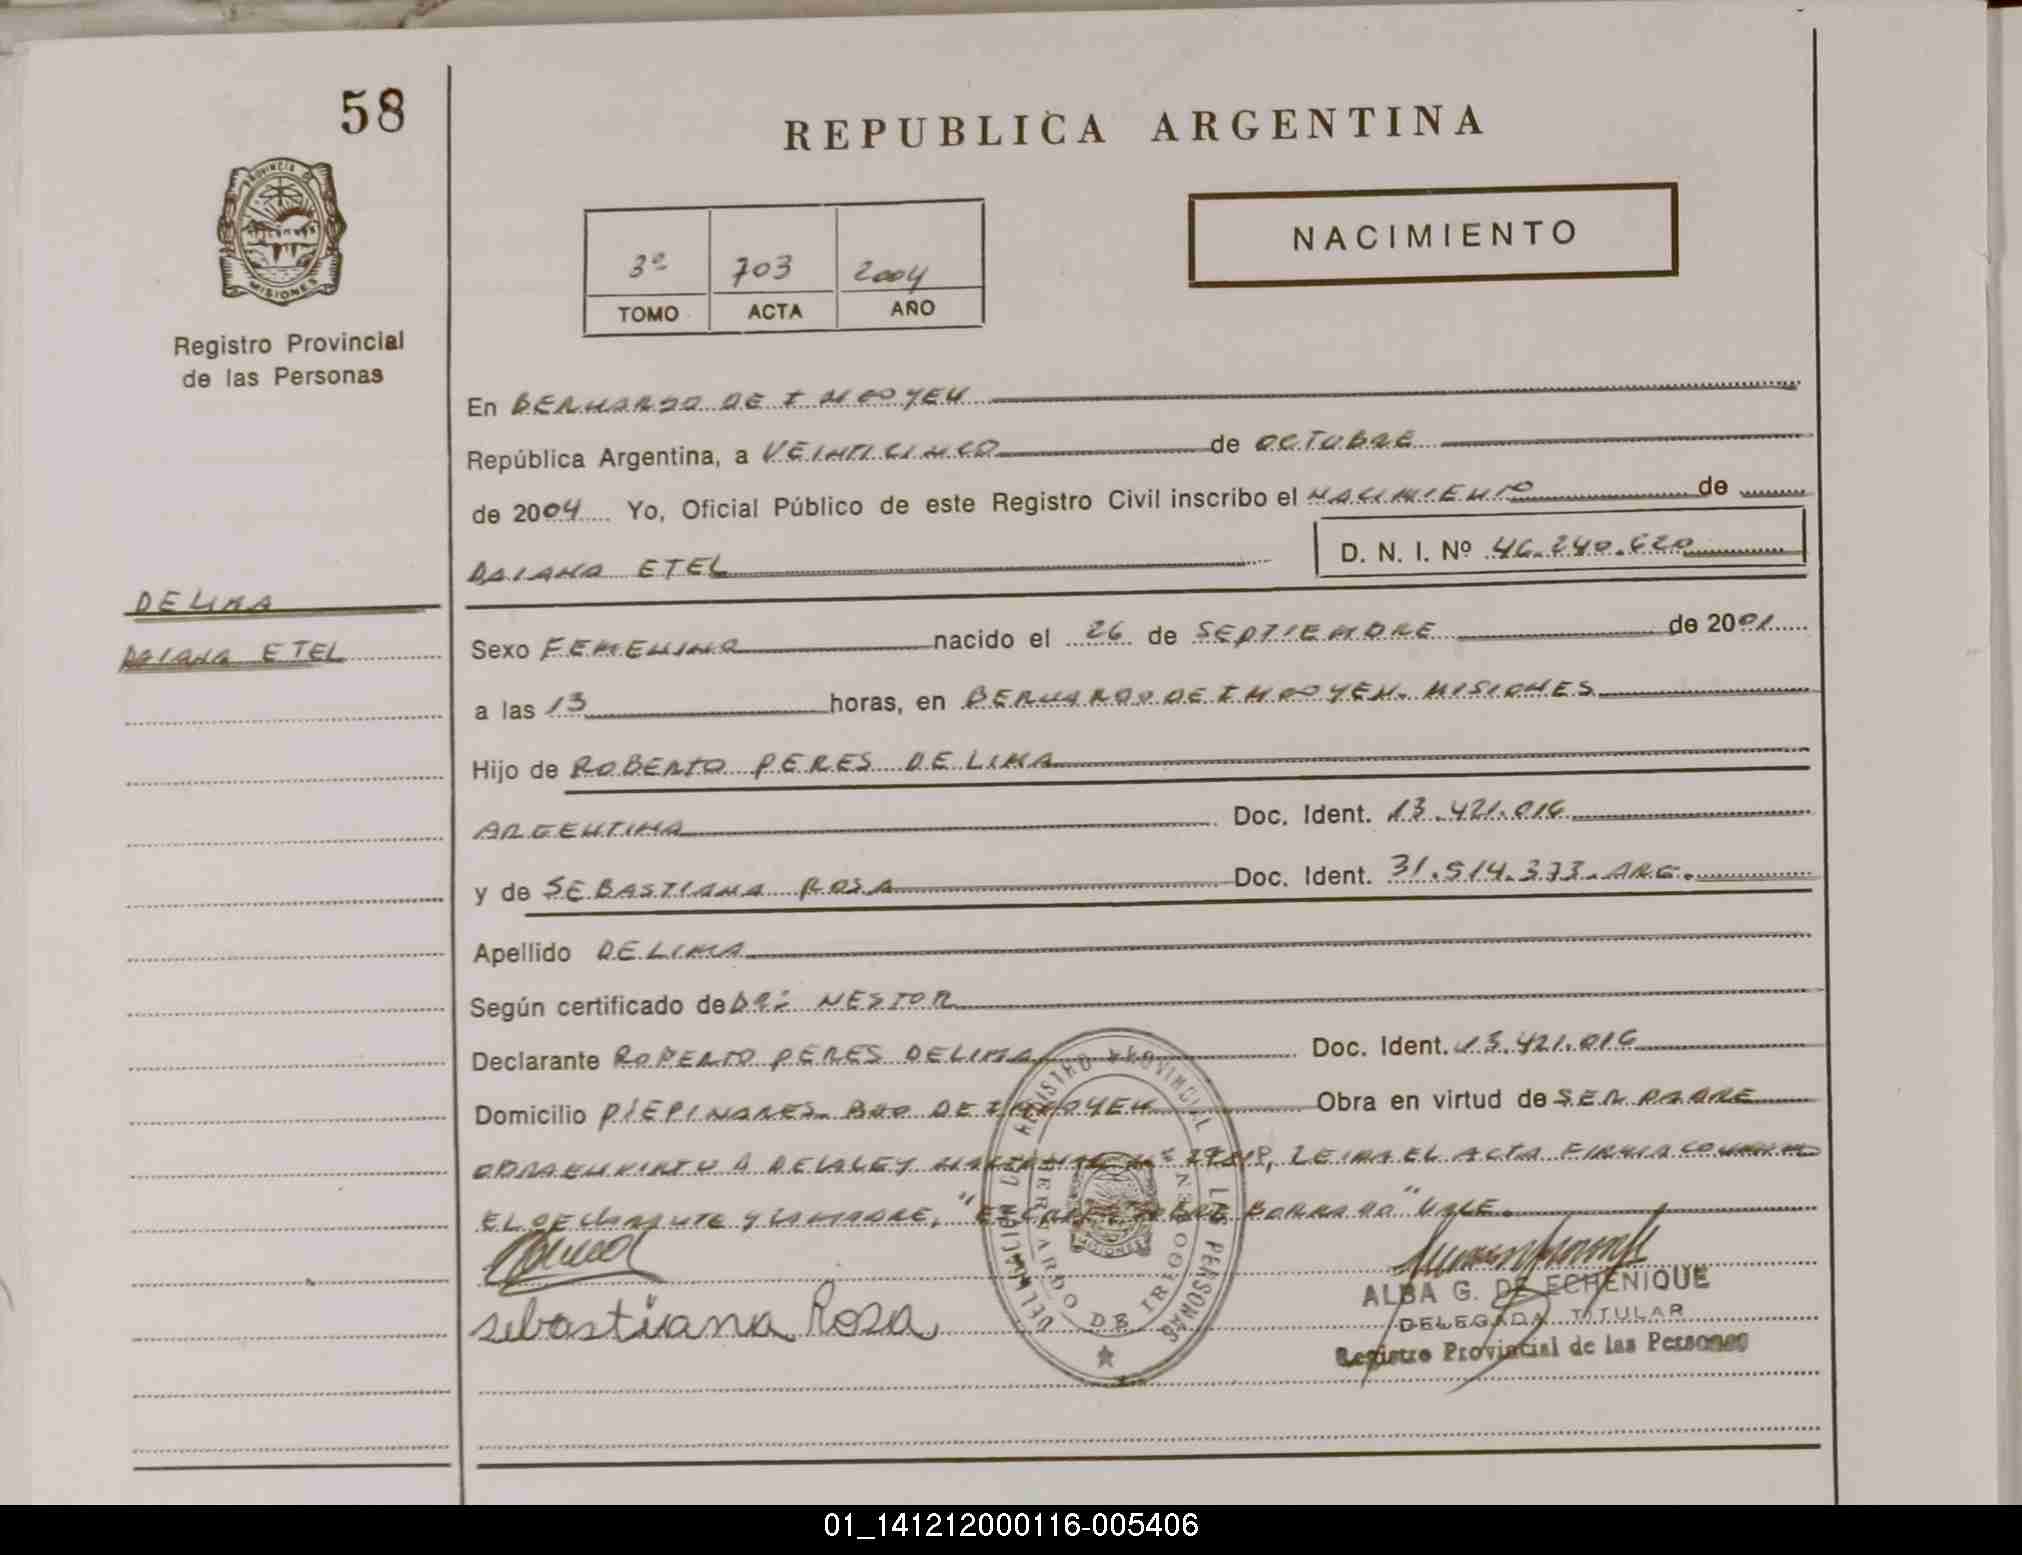 58
REPUBLICA ARGENTINA
PROVINCIA DE
MISIONES
NACIMIENTO
3º 703 2004
TOMO ACTA AÑO
Registro Provincial
de las Personas
En BERNARDO DE IRIGOYEN
República Argentina, a VEINTICINCO de OCTUBRE
de 2004 Yo, Oficial Público de este Registro Civil inscribo el NACIMIENTO de
DAIANA ETEL D. N. I. Nº 46.240.620
DE LIMA
DAIANA ETEL
Sexo FEMENINO nacido el 26 de SEPTIEMBRE de 2001
a las 13 horas, en BERNARDO DE IRIGOYEN. MISIONES
Hijo de ROBERTO PERES DE LIMA
ARGENTINA Doc. Ident. 13.421.016
y de SEBASTIANA ROSA Doc. Ident. 31.514.373. ARG.
Apellido DE LIMA
Según certificado de DR: NESTOR
Declarante ROBERTO PERES DE LIMA Doc. Ident. 13.421.016
Domicilio PIEPINARES. BDO DE IRIGOYEN Obra en virtud de SER PADRE
OBRA EN VIRTUD DE LA LEY NACIONAL Nº LEIDA EL ACTA FIRMA CONMIGO
EL DECLARANTE Y LA MADRE. "ENCARE SOBRE BORRADO" VALE.
sebastiana Rosa
DELEGACION DE REGISTRO PROVINCIAL DE LAS PERSONAS
BERNARDO DE IRIGOYEN
MISIONES
ALBA G. DE ECHENIQUE
DELEGADA TITULAR
Registro Provincial de las Personas
01_141212000116-005406